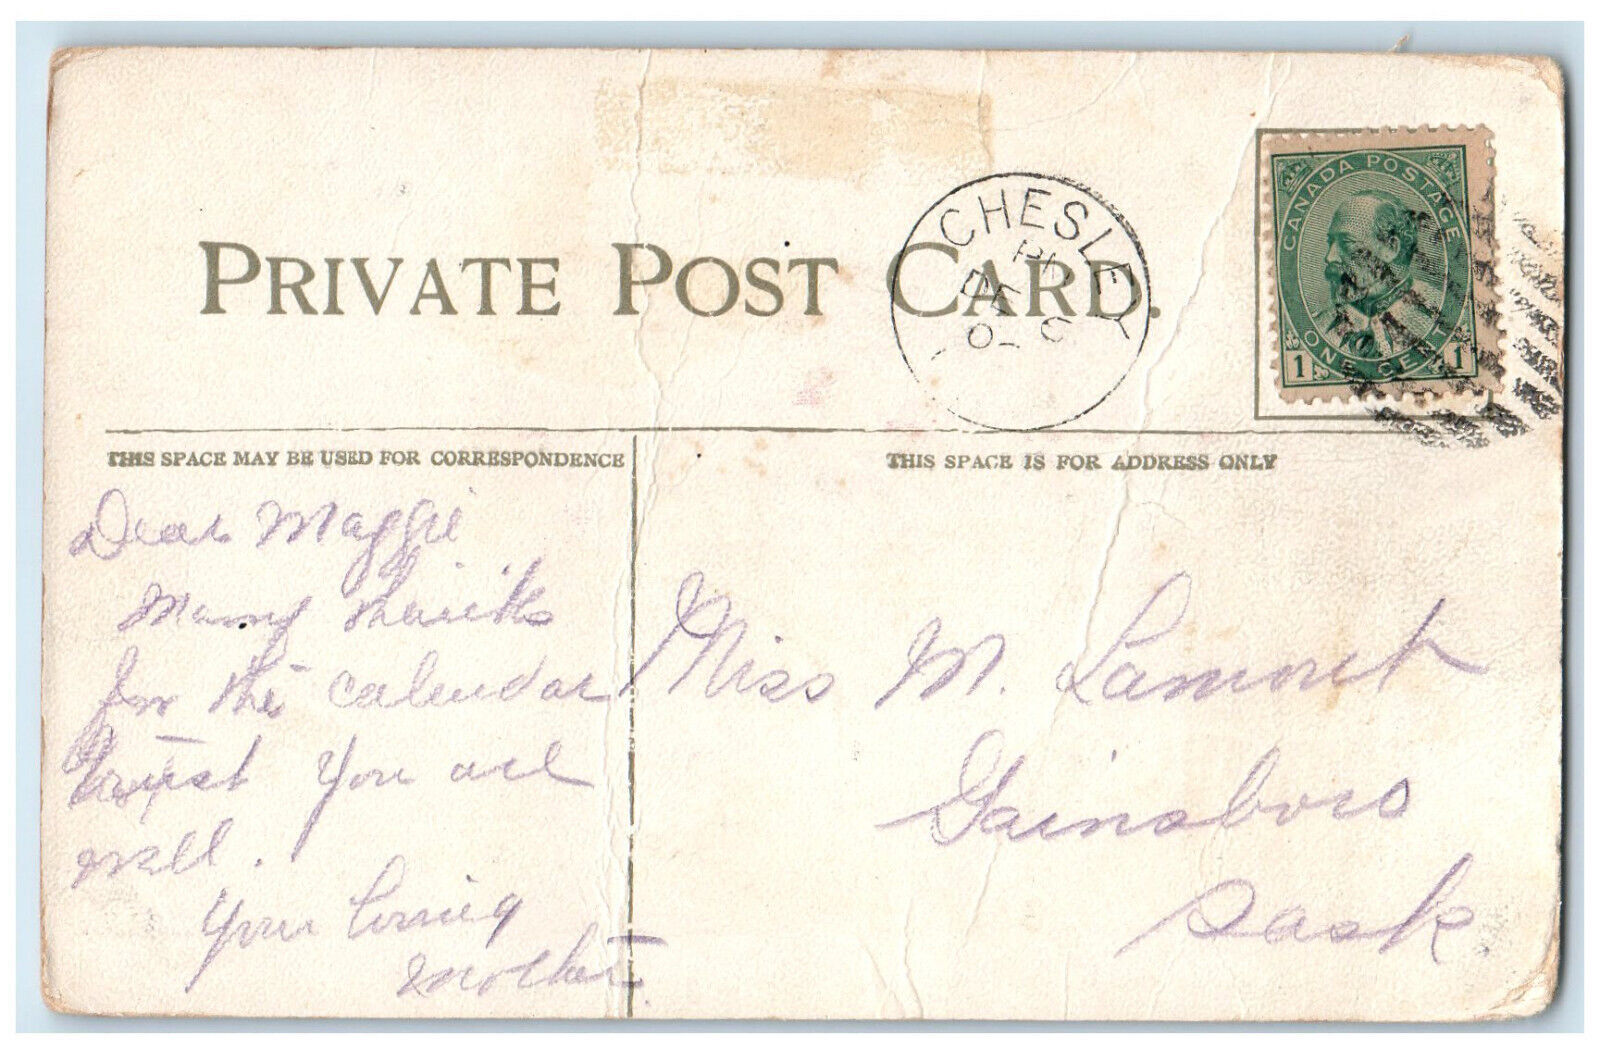 PRIVATE POST CARD.
CHESLEY
PM
DE
CANADA POSTAGE
1 ONE CENT 1
THIS SPACE MAY BE USED FOR CORRESPONDENCE
THIS SPACE IS FOR ADDRESS ONLY
Dear Maggie
Many thanks
for the calendar
trust you are
well.
your loving
mother
Miss M. Lamont
Gainsboro
Sask